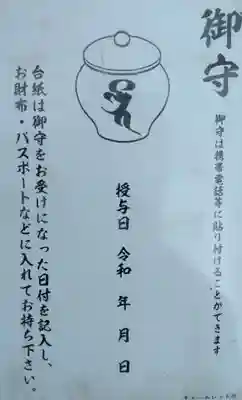 御守
御守は携帯電話等に貼り付けることができます
授与日 令和 年 月 日
台紙は御守をお受けになった日付を記入し、
お財布・パスポートなどに入れてお持ち下さい。